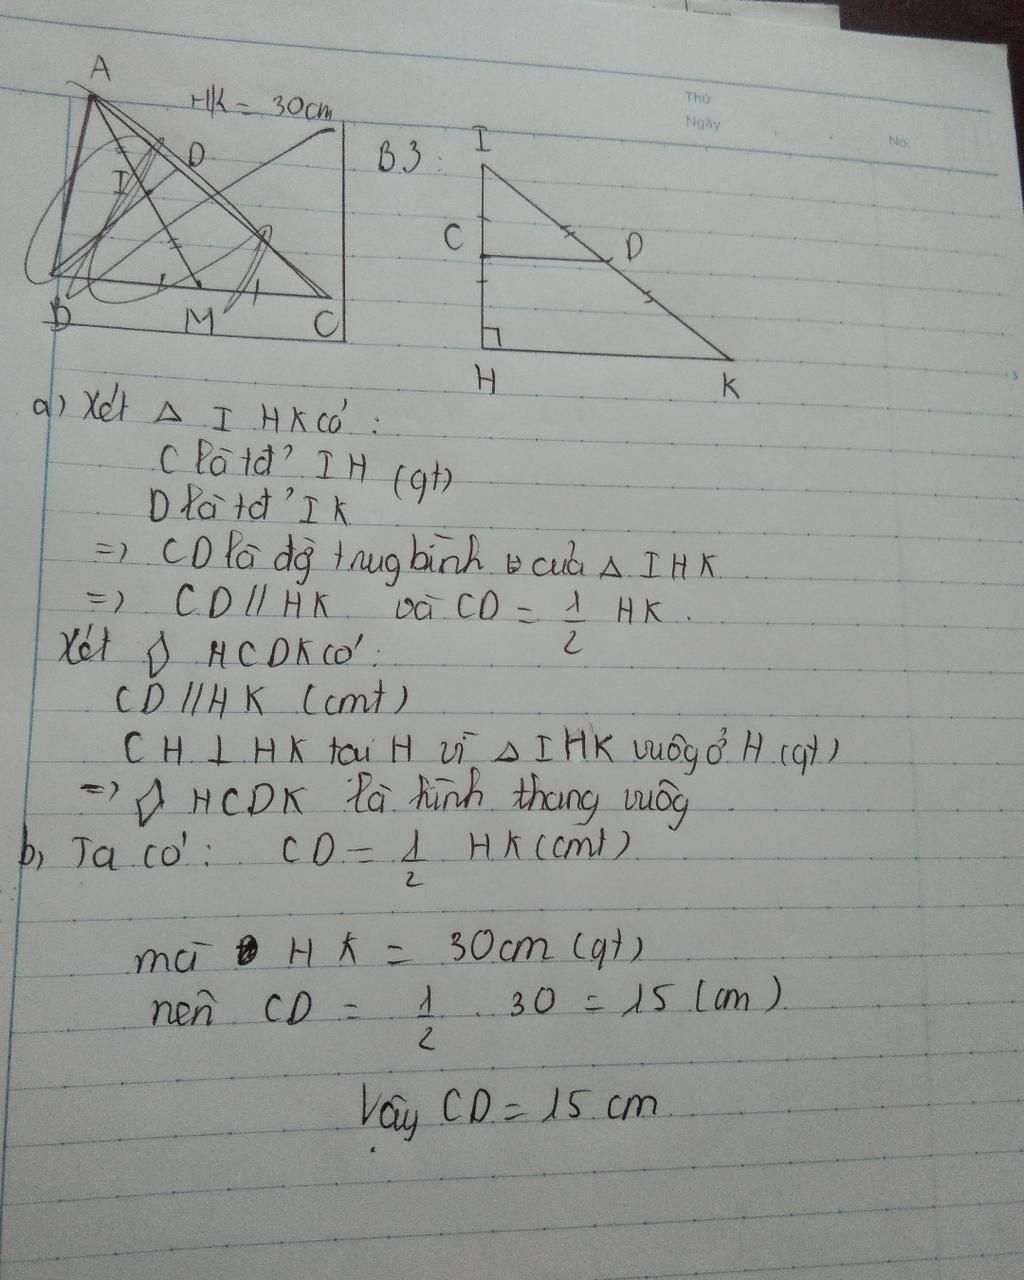 Thứ
Ngày
No.
A
HK = 30cm
D
I
B
M
C
B3:
I
C
D
H
K
a) Xét Δ I HK có:
C là tđ' IH (gt)
D là tđ' IK
=> CD là đg trug bình của Δ IHK
=> CD // HK và CD = 1/2 HK.
Xét ◊ HCDK có:
CD // HK (cmt)
CH ⊥ HK tại H vì Δ IHK vuôg ở H (gt)
=> ◊ HCDK là hình thang vuôg
b, Ta có: CD = 1/2 HK (cmt)
mà HK = 30cm (gt)
nên CD = 1/2 . 30 = 15 (cm)
Vây CD = 15 cm